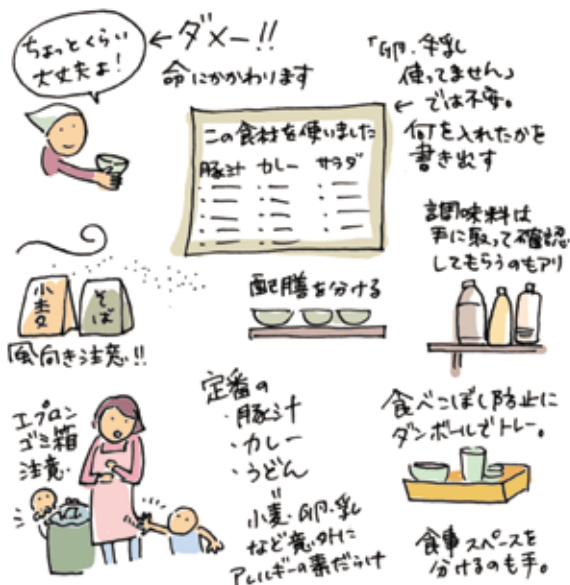 ちょっとくらい
大丈夫よ!
←ダメー!!
命にかかわります
「卵・牛乳
使ってません」
では不安。
←
何を入れたかを
書き出す
この食材を使いました
豚汁 カレー サラダ
調味料は
手に取って確認
してもらうのもアリ
小麦
そば
風向き注意!!
配膳を分ける
エプロン
ゴミ箱
注意
定番の
・豚汁
・カレー
・うどん
小麦・卵・乳
など意外に
アレルギーの素だらけ
食べこぼし防止に
ダンボールでトレー。
食事スペースを
分けるのも手。